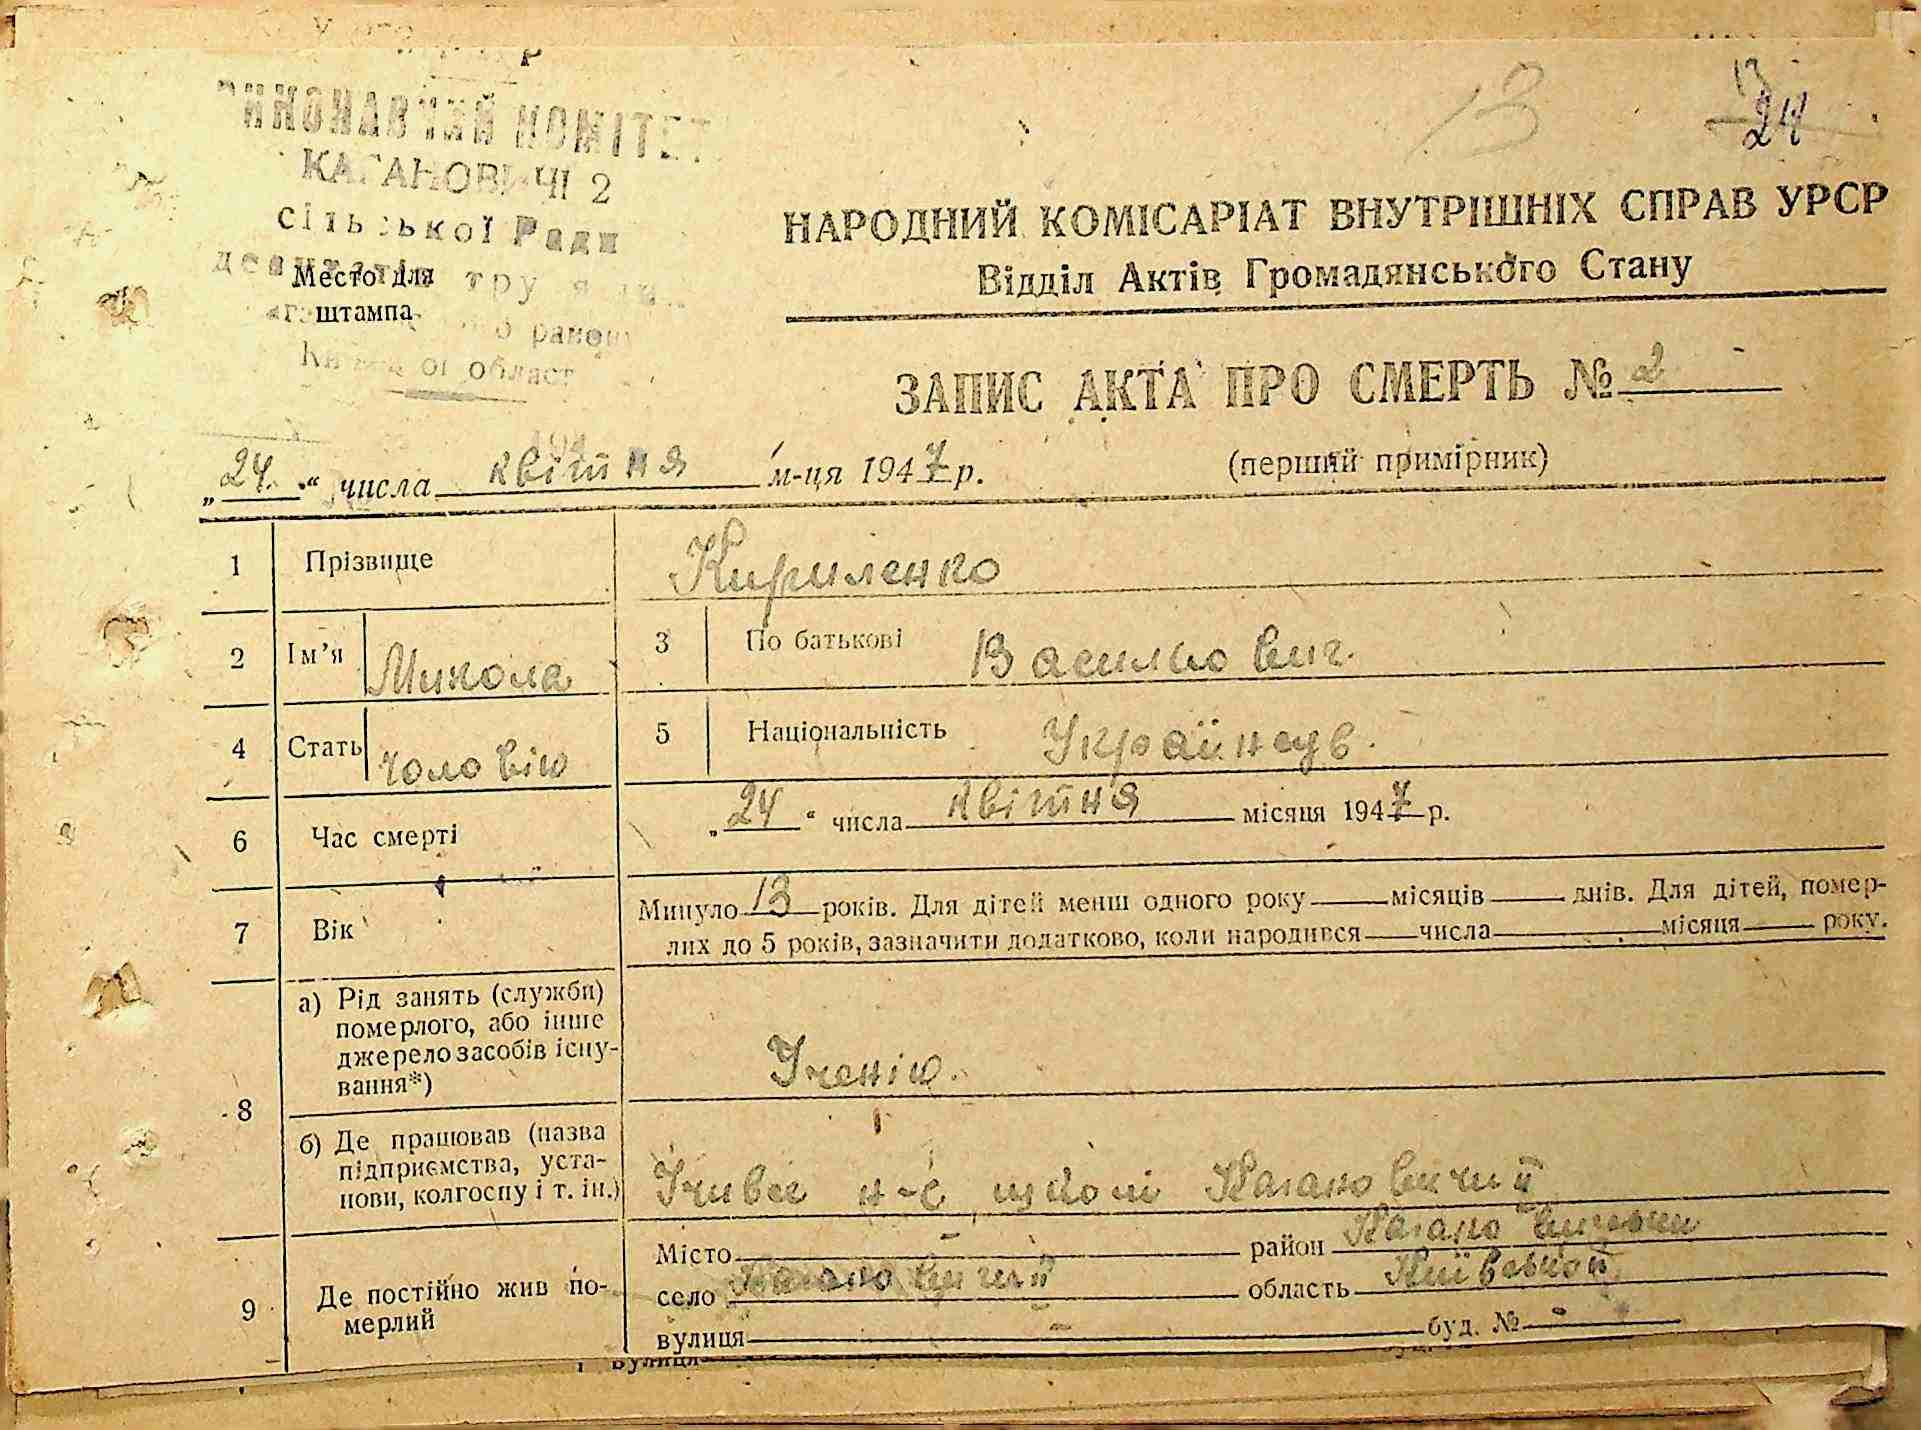 13
13
24
КОМІТЕТ
КАГАНОВИЧІ 2
сільської Ради
Место для
штампа
НАРОДНИЙ КОМІСАРІАТ ВНУТРІШНІХ СПРАВ УРСР
Відділ Актів Громадянського Стану
ЗАПИС АКТА ПРО СМЕРТЬ № 2
„24.“ числа квітня м-ця 1947 р.
(перший примірник)
1 Прізвище Кириленко
2 Ім'я Микола 3 По батькові Васильович.
4 Стать чоловік 5 Національність
6 Час смерті „24“ числа квітня місяця 1947 р.
7 Вік Минуло 13 років. Для дітей менш одного року місяців днів. Для дітей, помер-
лих до 5 років, зазначити додатково, коли народився числа місяця року.
8 а) Рід занять (служби)
померлого, або інше
джерело засобів існу-
вання*)
Ученік.
б) Де працював (назва
підприємства, уста-
нови, колгоспу і т. ін.)
школі
9 Де постійно жив по-
мерлий
Місто — район
село область
вулиця — буд. № -
вулиця